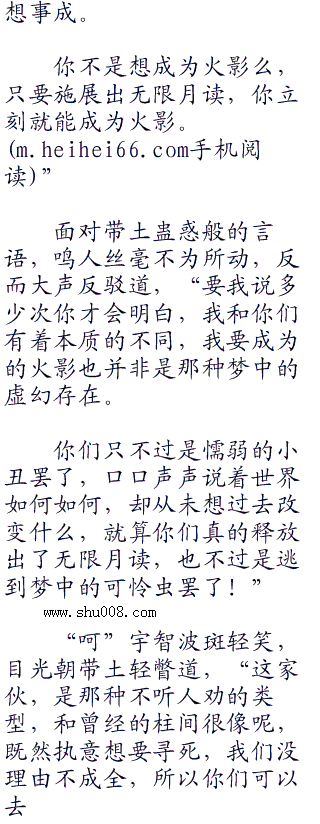 想事成。
你不是想成为火影么，
只要施展出无限月读，你立
刻就能成为火影。
(m.heihei66.com手机阅
读)”
面对带土蛊惑般的言
语，鸣人丝毫不为所动，反
而大声反驳道，“要我说多
少次你才会明白，我和你们
有着本质的不同，我要成为
的火影也并非是那种梦中的
虚幻存在。
你们只不过是懦弱的小
丑罢了，口口声声说着世界
如何如何，却从未想过去改
变什么，就算你们真的释放
出了无限月读，也不过是逃
到梦中的可怜虫罢了！”
www.shu008.com
“呵”宇智波斑轻笑，
目光朝带土轻瞥道，“这家
伙，是那种不听人劝的类
型，和曾经的柱间很像呢，
既然执意想要寻死，我们没
理由不成全，所以你们可以
去